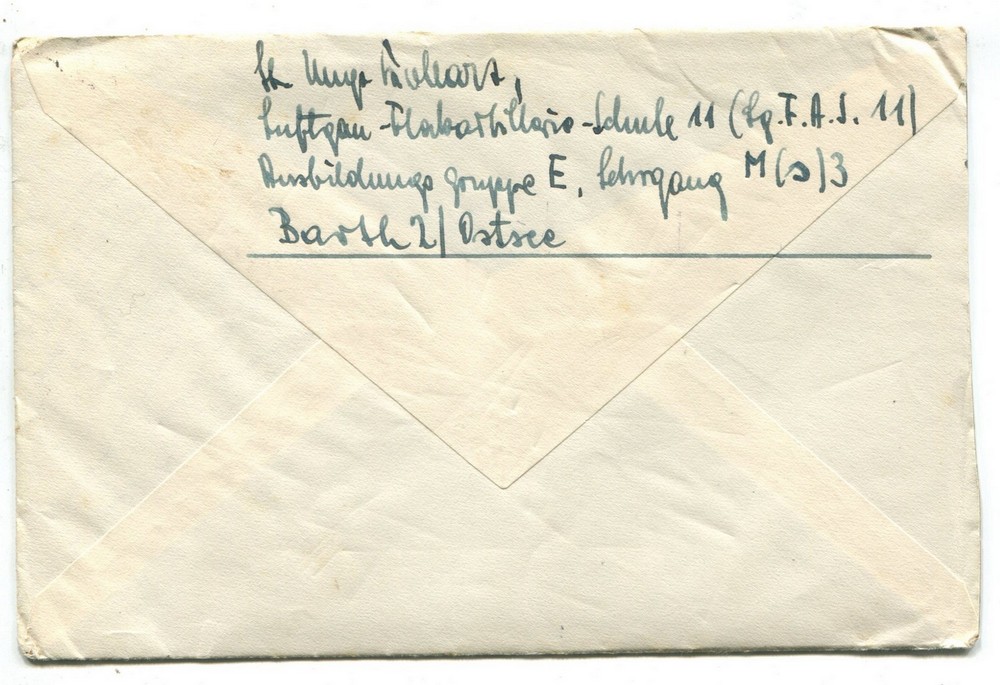 Hugo
Luftgau-Flakartillerie-Schule 11 (Lg.F.A.S. 11)
Ausbildungsgruppe E, Lehrgang M(s)3
Barth 2/Ostsee